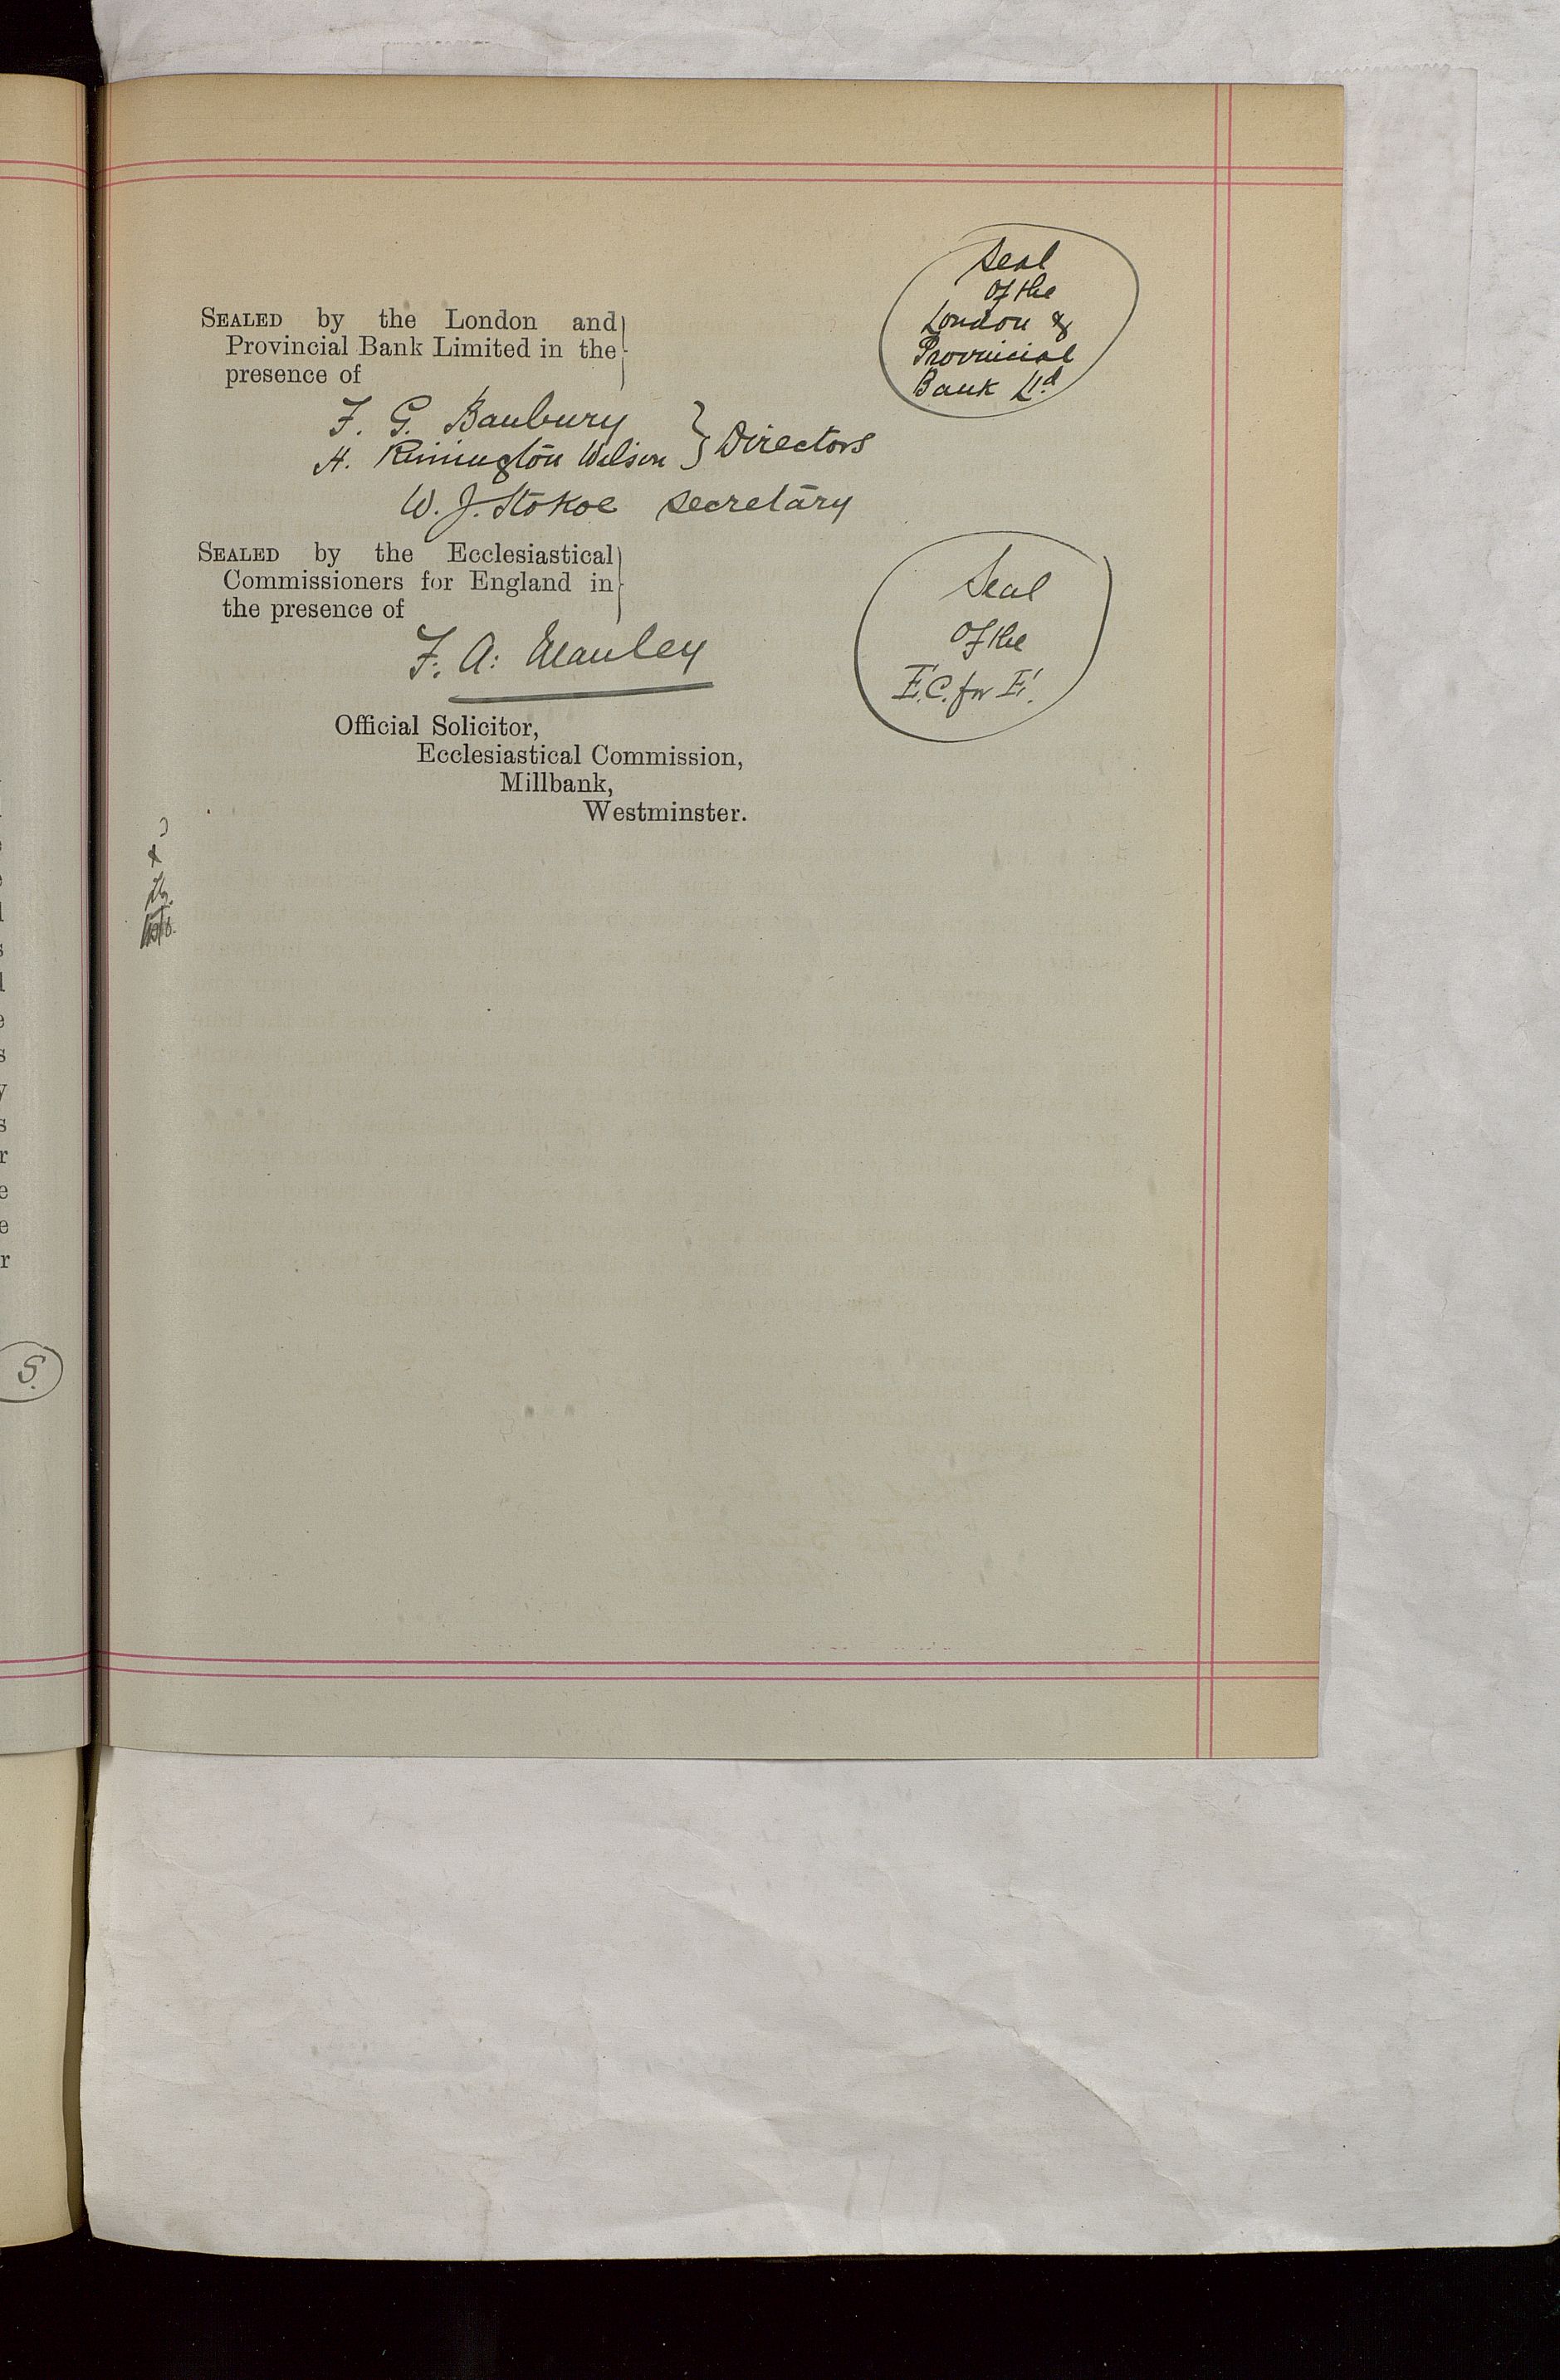 SEALED by the London and
Provincial Bank Limited in the
presence of
Seal
of the
London &
Provincial
Bank Ltd
F. G. Banbury
H. Rimington Wilson } Directors
W. J. Stokoe Secretary
SEALED by the Ecclesiastical
Commissioners for England in
the presence of
Seal
of the
E.C. for E.
F. A. Manley
Official Solicitor,
Ecclesiastical Commission,
Millbank,
Westminster.
S.